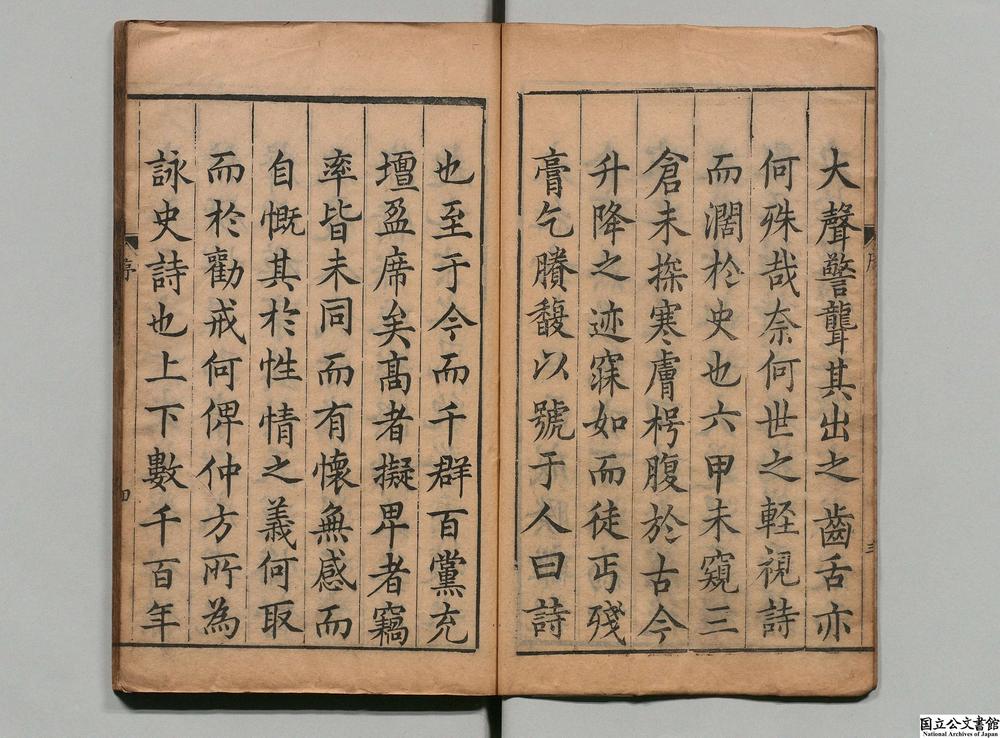 大聲警聾其出之齒舌亦
何殊哉奈何世之輕視詩
而濶於史也六甲未窺三
倉未探寒膚枵腹於古今
升降之迹寐如而徒丐殘
膏乞賸馥以號于人曰詩
也至于今而千群百黨充
壇盈席矣髙者擬畀者竊
率皆未同而有懷無感而
自慨其於性情之義何取
而於勸戒何俾仲方所為
詠史詩也上下數千百年
国立公文書館
National Archives of Japan